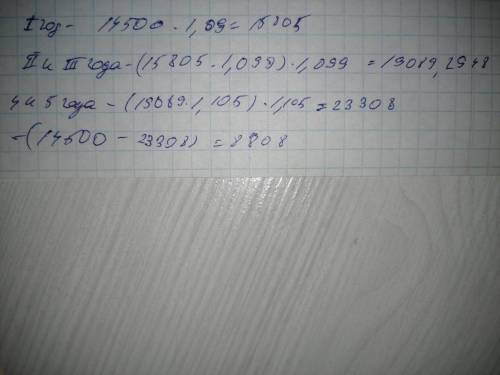 I год - 14500 · 1,09 = 15805
II и III года - (15805 · 1,099) · 1,099 = 19089,2948
4 и 5 года - (19089 · 1,105) · 1,105 = 23308
-(14500 - 23308) = 8808